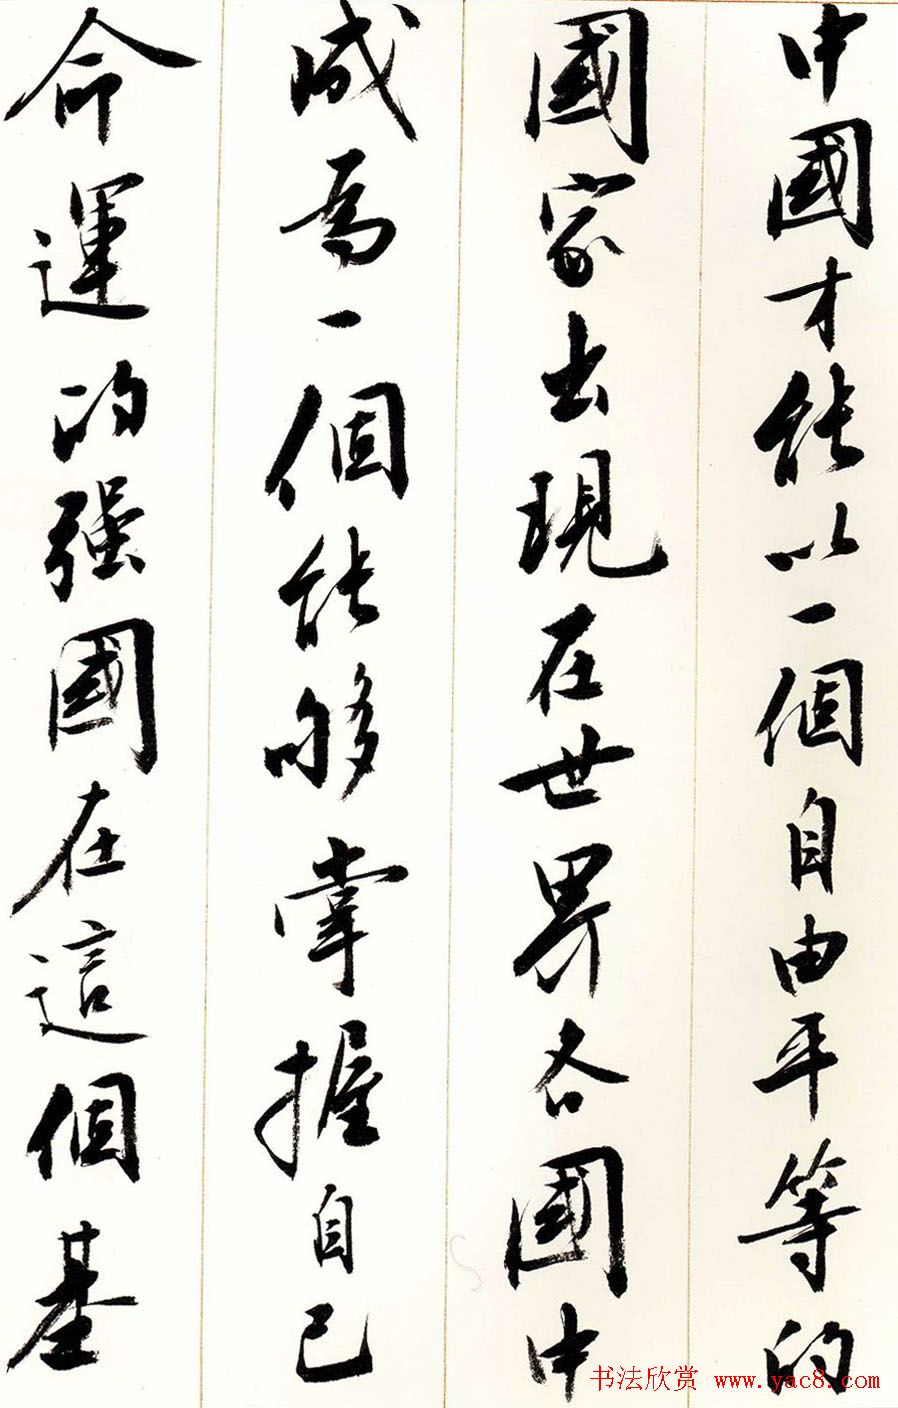 中國才能以一個自由平等的
國家出現在世界各國中
成為一個能夠掌握自己
命運的强國在這個基
书法欣赏 www.yac8.com